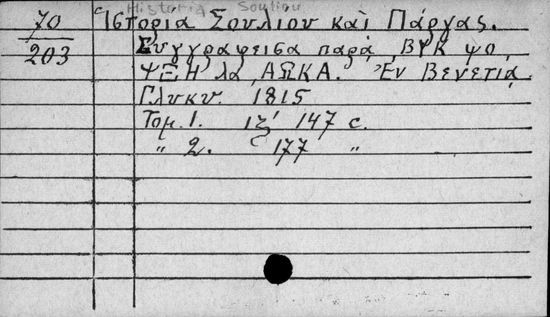 Historia Souliou
70 Ἱστορια Σουλιου καὶ Πάργας.
203 Συγγραφεισα παρὰ ΒΥΚ ψο
ΨΞΗ λα, ΑΩΚΑ. Ἐν Βενετιᾳ
Γλυκυ. 1815
Τομ. 1. ιζ' 147 с.
" 2. 177 "